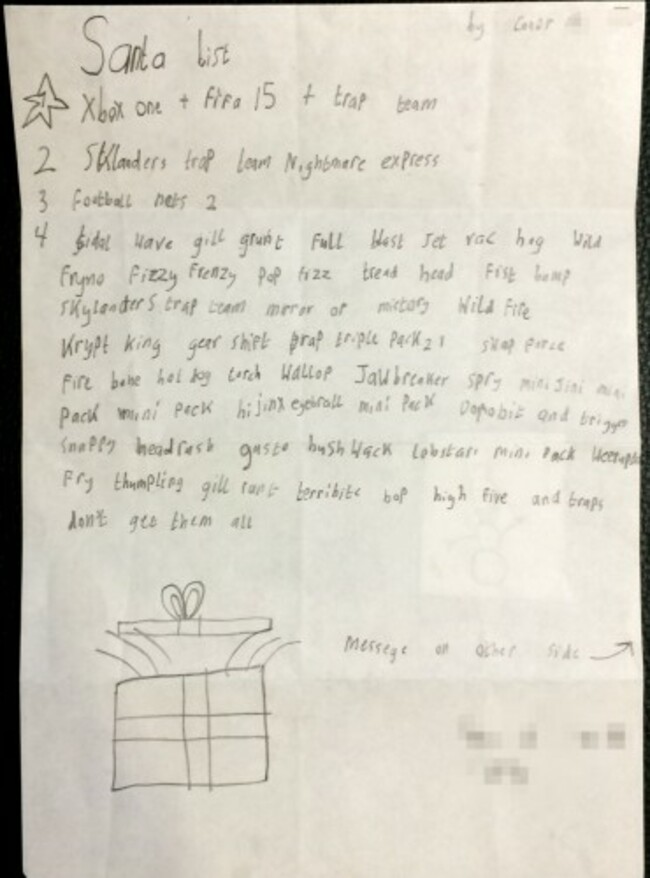 by Conor
Santa list
1 Xbox one + fifa 15 + trap team
2 SKlanders trap team Nightmare express
3 football nets 2
4 tidal wave gill grunt Full blast Jet vac hog Wild
Fryno Fizzy Frenzy Pop fizz tread head Fist bump
SKylanders trap team mirror of mistory Wild Fire
Krypt King gear shift trap triple Pack 2x swap force
Fire bone hot dog torch Wallop Jawbreaker spry mini Jini mini
Pack mini Pack hijinx eyebrall mini Pack and trigger
Snappy headrush gusto bushWack lobstar mini Pack
Fry thumpling gill runt terribite bop high five and traps
don't get them all
Messege on other side